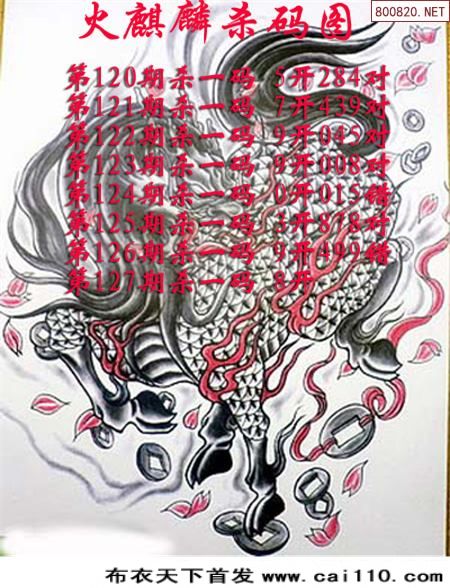 800820.NET
火麒麟杀码图
第120期杀一码 5开284对
第121期杀一码 7开439对
第122期杀一码 9开045对
第123期杀一码 9开008对
第124期杀一码 0开015错
第125期杀一码 3开878对
第126期杀一码 9开499错
第127期杀一码 8开
布衣天下首发 www.cai110.com